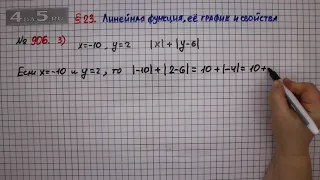 4 по 5 им
§ 23. Линейная функция, её график и свойства
№ 906. 3) x=-10, y=2 |x| + |y-6|
Если x=-10 и y=2, то |-10| + |2-6| = 10 + |-4| = 10+